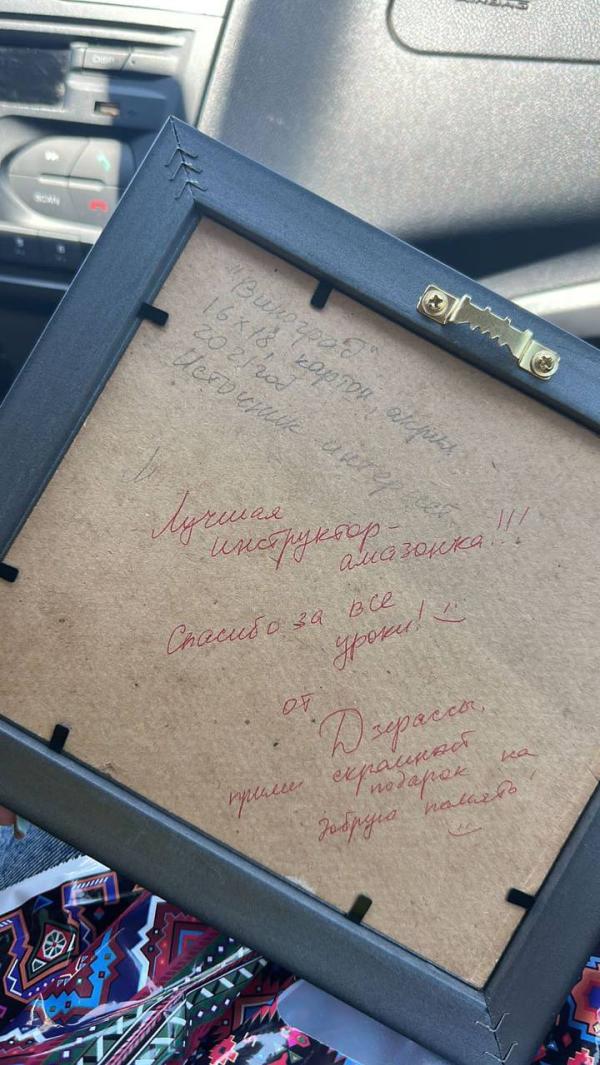 "Виноград"
16х18 картон, акрил
2021 год
Источник интерьет
Лучшая
инструктор-
амазонка!!!
Спасибо за все
уроки!
от
Дзерассы,
прими скромный
подарок на
добрую память!
SCAN